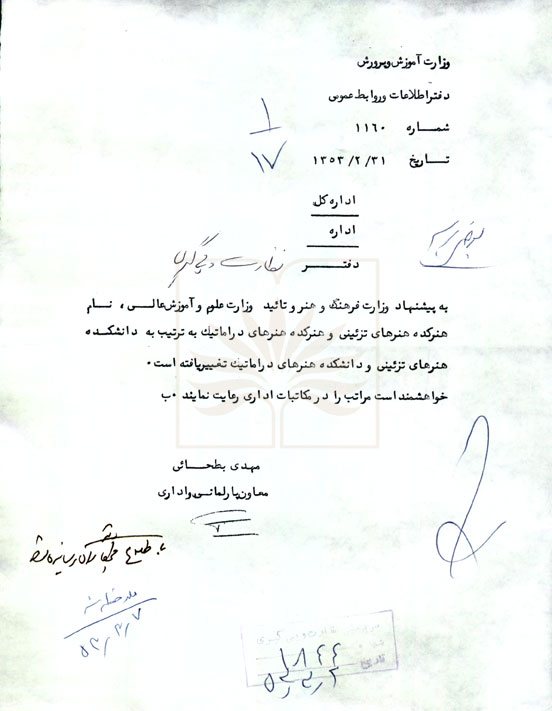 وزارت آموزش و پرورش
دفتر اطلاعات و روابط عمومی
شماره ۱۱۶۰
۱
تاریخ ۱۳۵۳/۲/۳۱
۱۷
اداره کل
اداره
دفتر نظارت و پی گیری
به پیشنهاد وزارت فرهنگ و هنر و تائید وزارت علوم و آموزش عالی ، نام
هنرکده هنرهای تزئینی و هنرکده هنرهای دراماتیك به ترتیب به دانشکده
هنرهای تزئینی و دانشکده هنرهای دراماتیك تغییر یافته است ۰
خواهشمند است مراتب را در مکاتبات اداری رعایت نمایند ۰ ب
مهدی بطحائی
معاون پارلمانی و اداری
ملاحظه شد
۵۳/۳/۷